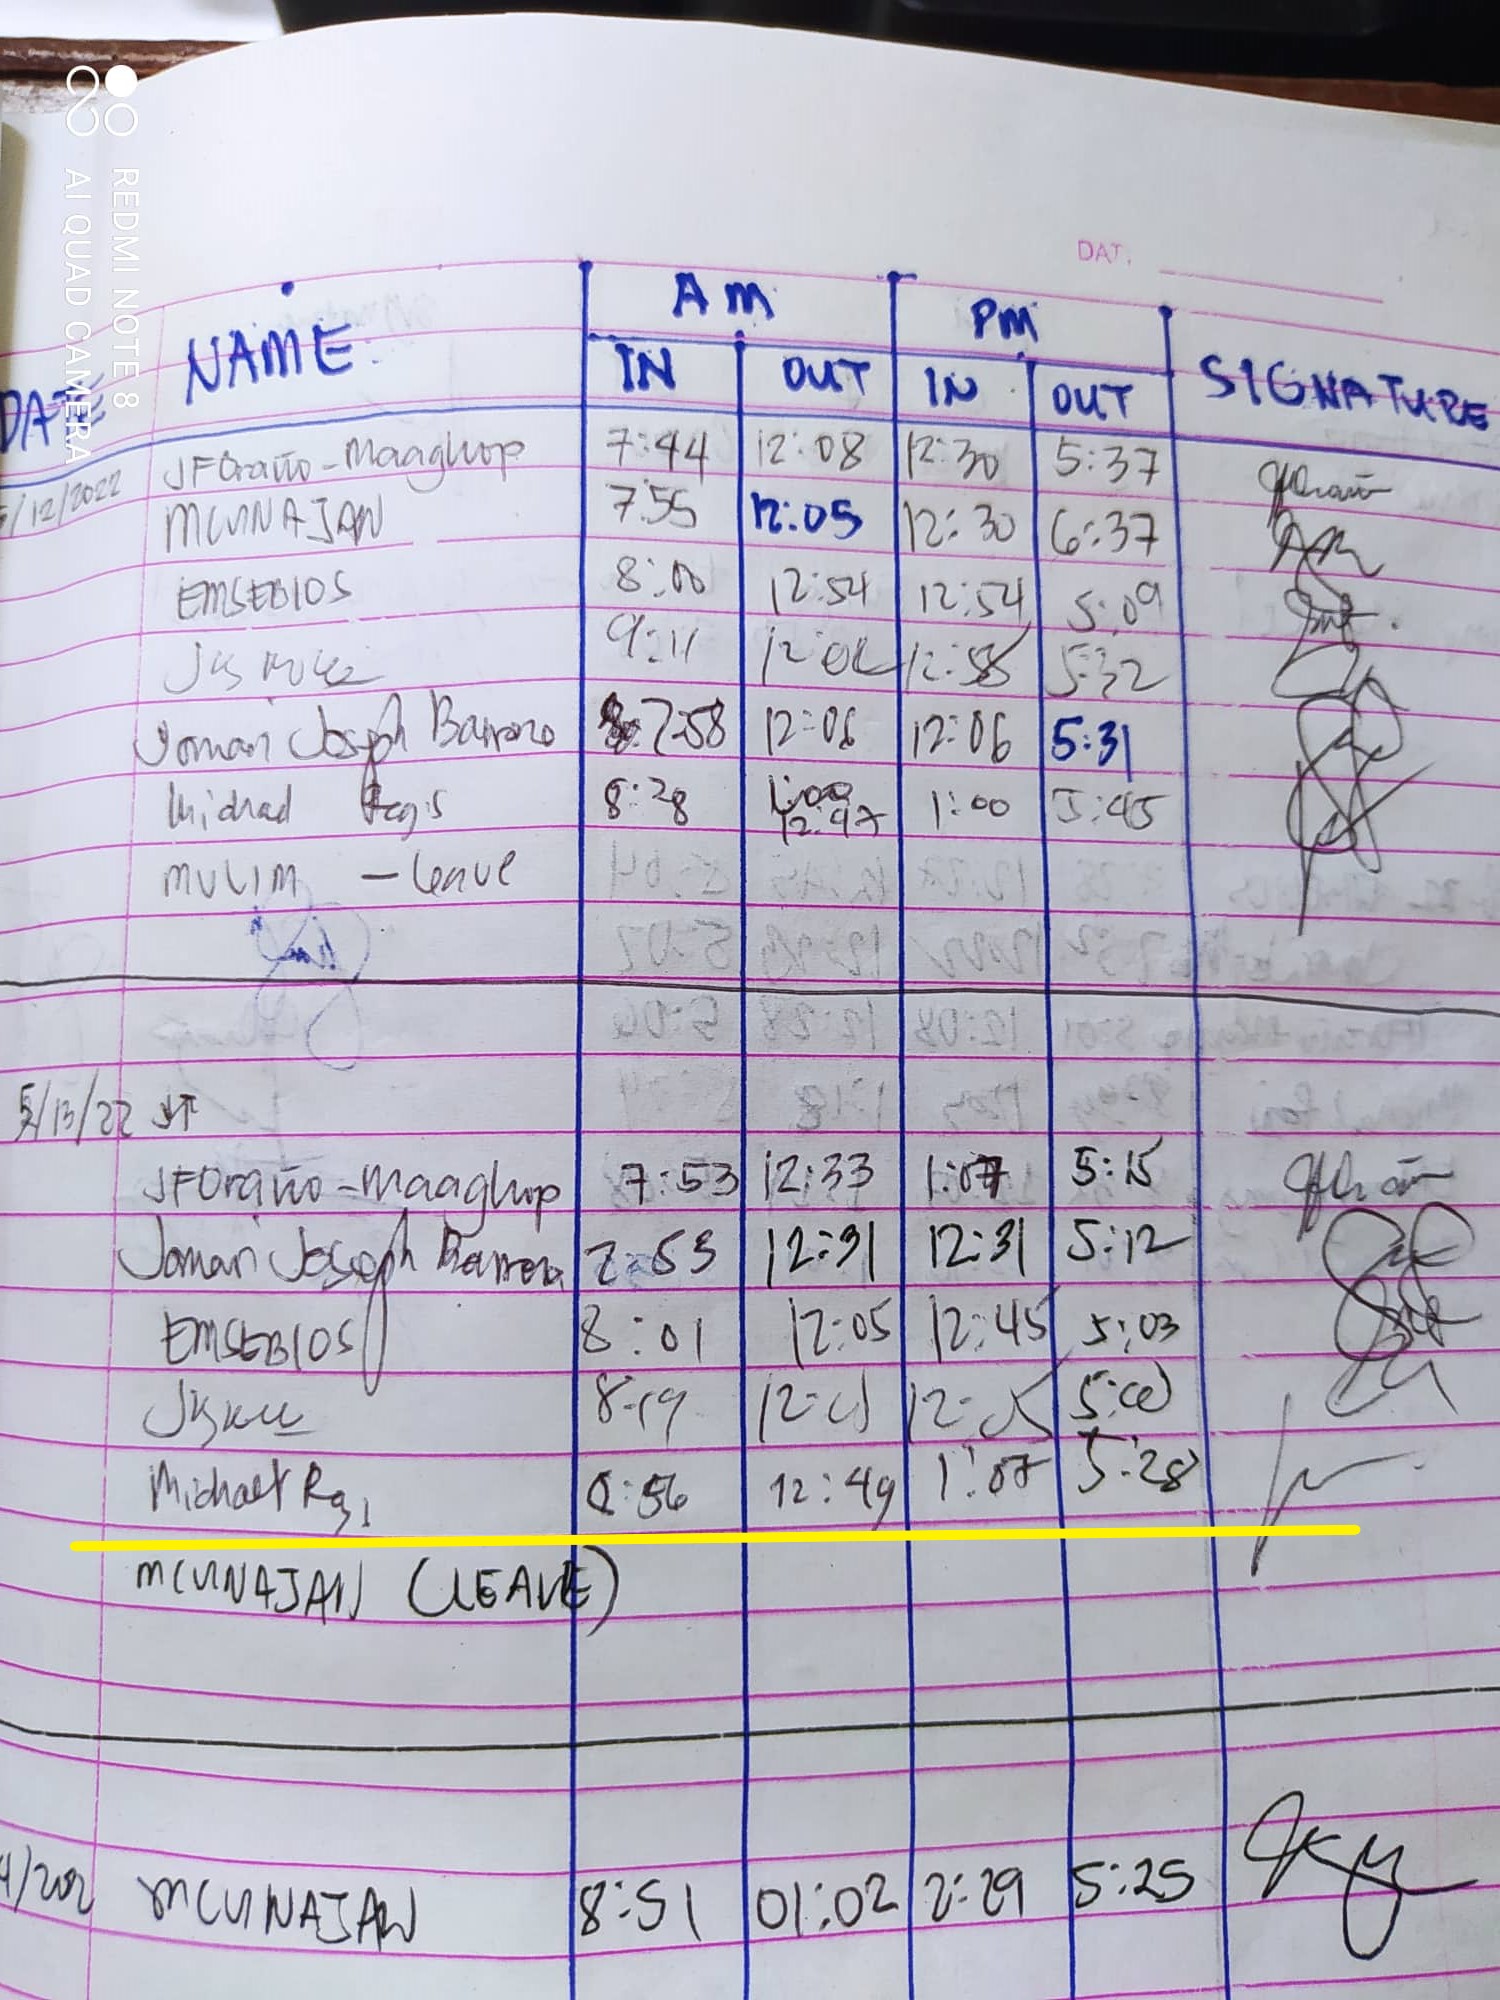 REDMI NOTE 8
AI QUAD CAMERA
DAT.
DATE NAME AM PM SIGNATURE
IN OUT IN OUT
/12/2022 JFOraño-Maaghop 7:44 12:08 12:30 5:37
MCUNAJAN 7:55 12:05 12:30 6:37
EMSEBIOS 8:00 12:54 12:54 5:09
9:11 5:32
Jomari Joseph Barrozo 7:58 12:06 12:06 5:31
Michael Regis 8:28 1:00 12:47 1:00 5:45
MVLIM - leave
5/13/22
JFOraño-Maaghop 7:53 12:33 1:07 5:15
Jomari Joseph 7:53 12:31 12:31 5:12
EMSEBIOS 8:01 12:05 12:45 5:03
8:19
Michael 8:56 12:49 1:07 5:28
MCUNAJAN (LEAVE)
MCUNAJAN 8:51 01:02 2:29 5:25